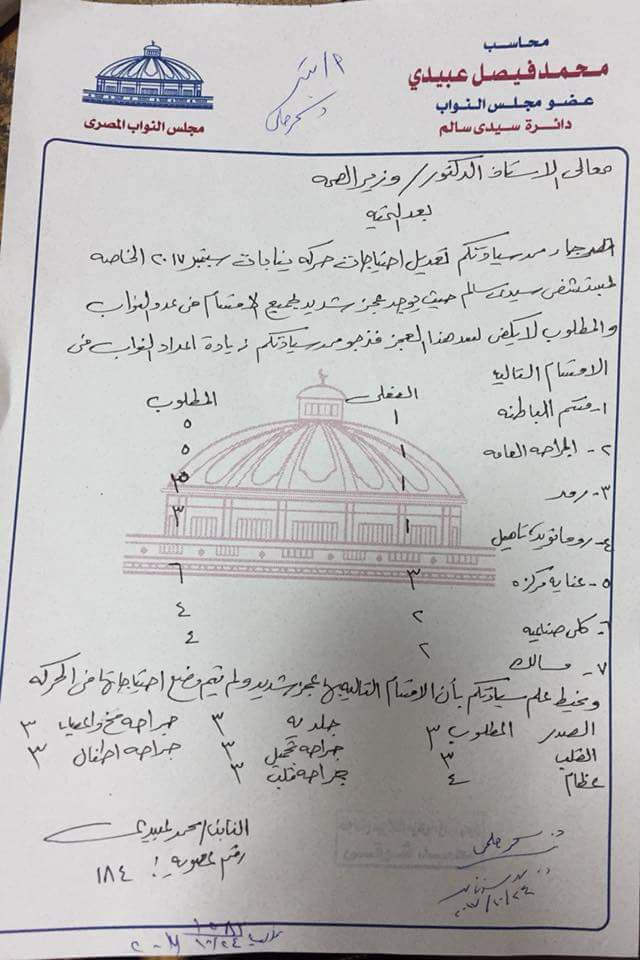 محاسب
محمد فيصل عبيدي
عضو مجلس النواب
دائرة سيدى سالم
مجلس النواب المصرى
د. سحر حلمى
معالى الاستاذ الدكتور / وزير الصحه
بعد التحيه
رجاء من سيادتكم تعديل احتياجات حركه نيابات سبتمبر ٢٠١٧ الخاصه
لمستشفى سيدى سالم حيث يوجد عجز شديد بجميع الاقسام فى عدد النواب
والمطلوب لا يكفى لسد هذا العجز فنرجو من سيادتكم زيادة اعداد النواب فى
الاقسام التاليه
الفعلى المطلوب
١- قسم الباطنه ١ ٥
٢- الجراحه العامه ١ ٥
٣- رمد ١
٤- روماتيزم وتاهيل ١ ٣
٥- عنايه مركزه ٣ ٦
٦- كلى صناعيه ٢ ٤
٧- مسالك ٢ ٤
ونحيط علم سيادتكم بأن الاقسام التاليه بها عجز شديد ولم يتم وضع احتياجاتها فى الحركه
الصدر المطلوب ٣ جلديه ٣ جراحه مخ واعصاب ٣
القلب ٣ جراحه تجميل ٣ جراحه اطفال ٣
عظام ٤ جراحه قلب ٣
النائب / محمد عبيدى
رقم عضويه : ١٨٤
سحر حلمى